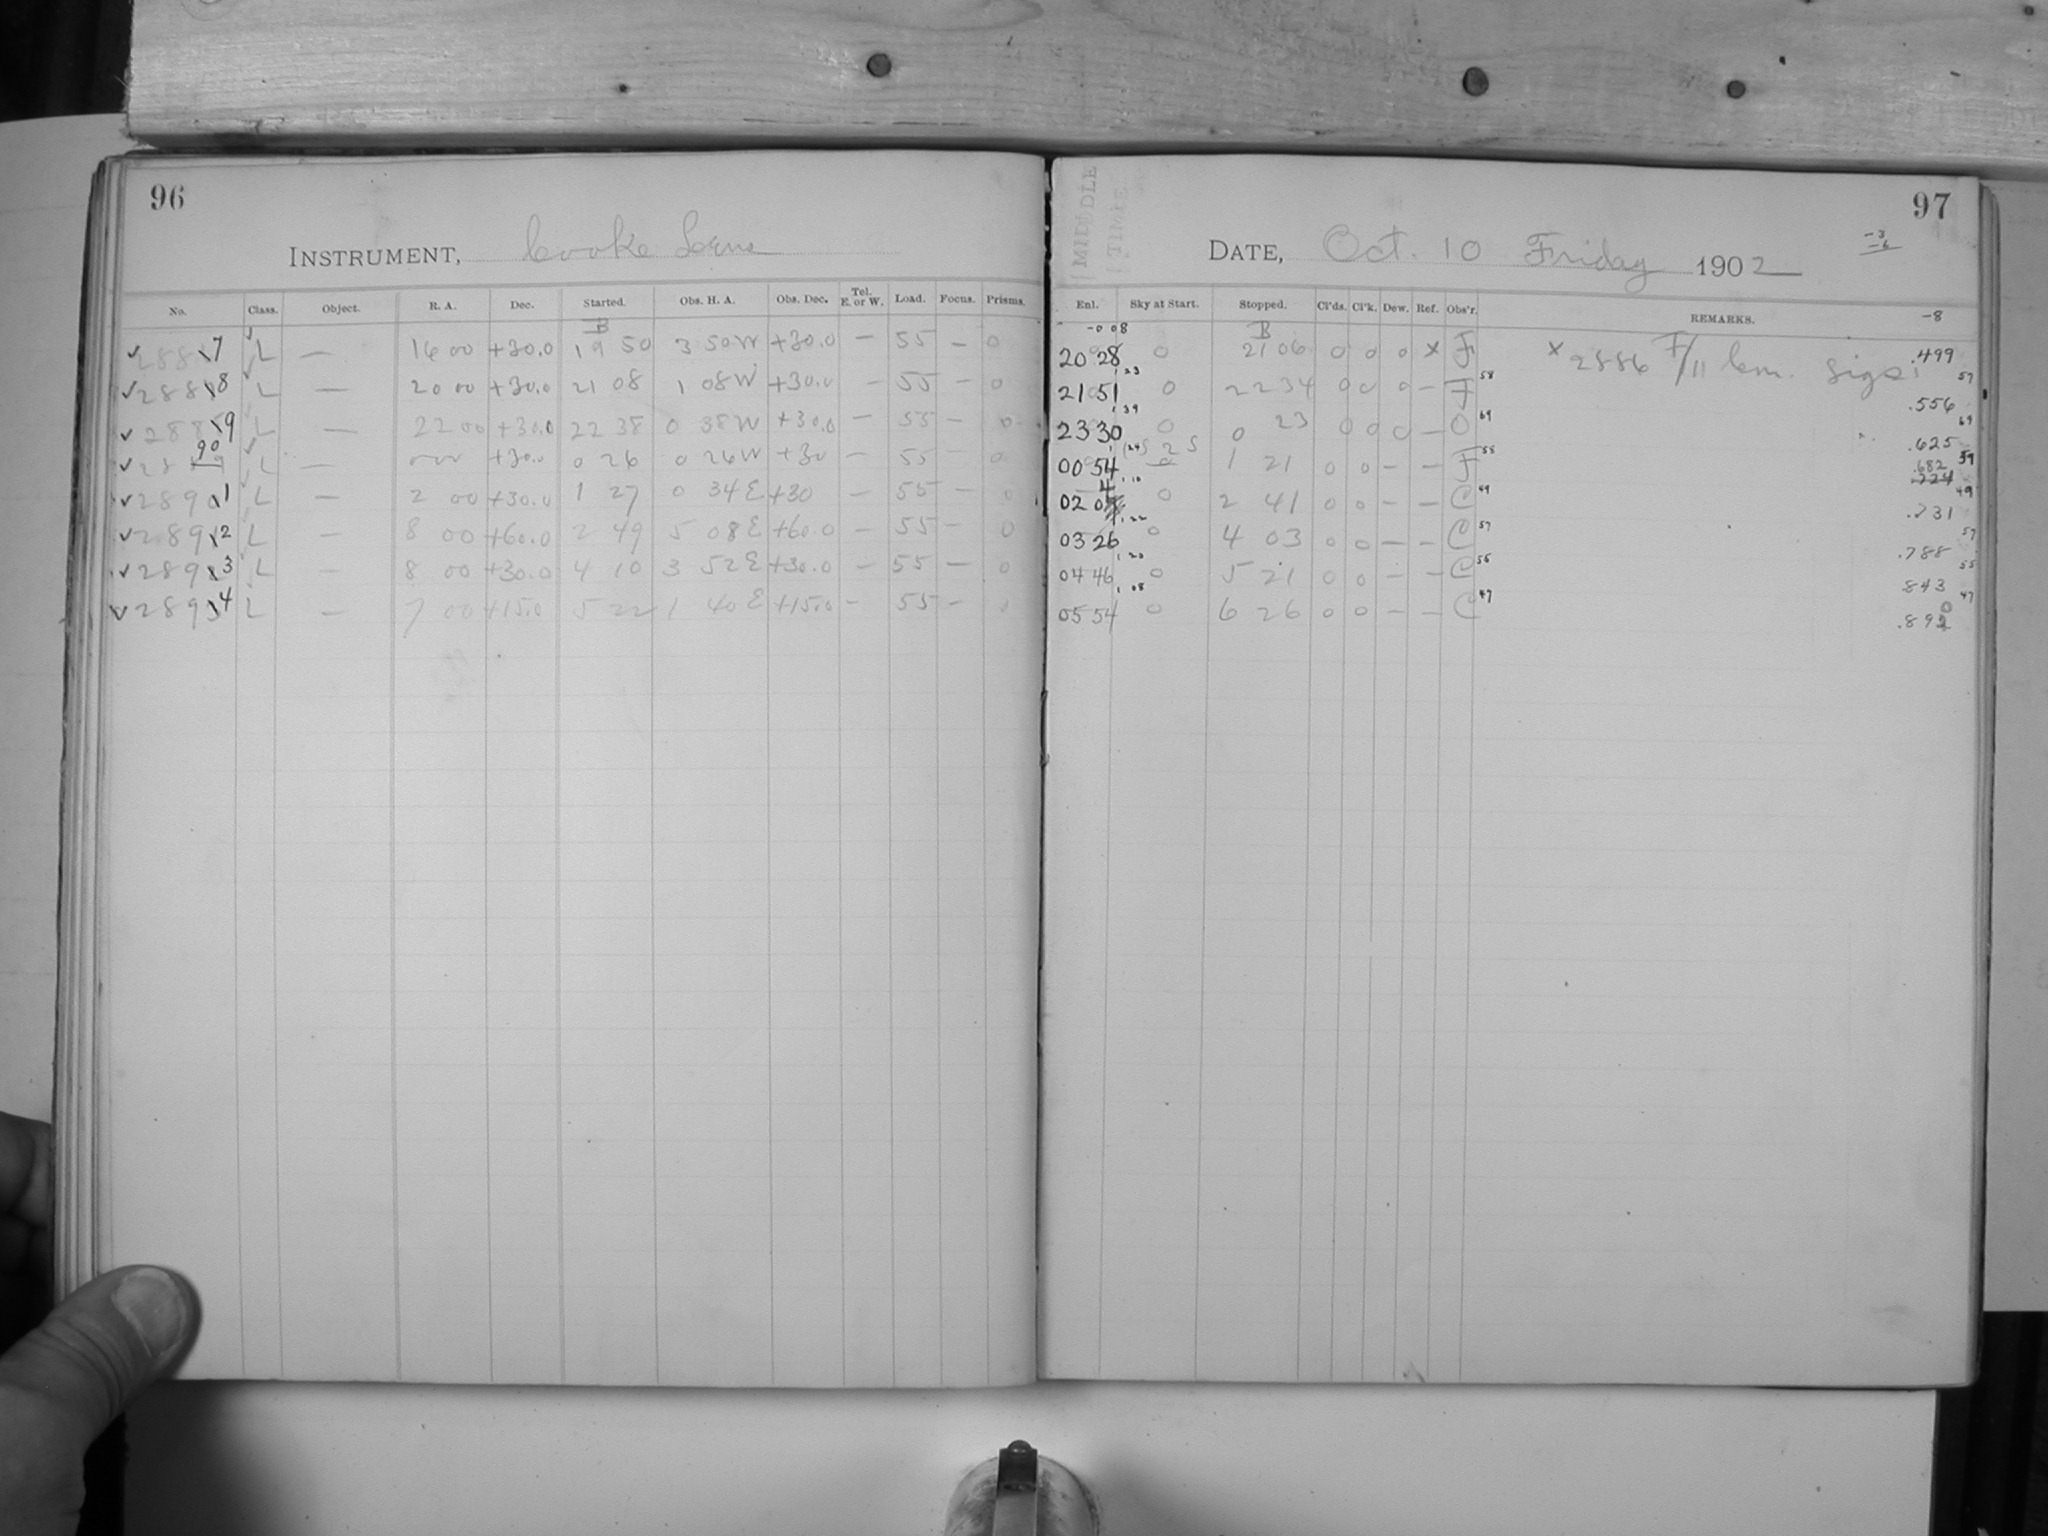 96
INSTRUMENT, Cooke Lens
No. Class. Object. R. A. Dec. Started. Obs. H. A. Obs. Dec. Tel. E. or W. Load. Focus. Prisms.
B
✓ 2887 L — 16 00 +30.0 19 50 3 50 W +30.0 — 55 — 0
✓ 2888 L — 20 00 +30.0 21 08 1 08 W +30.0 — 55 — 0
✓ 2889 L — 22 00 +30.0 22 38 0 38 W +30.0 — 55 — 0
✓ 2890 L — 0 00 +30.0 0 26 0 26 W +30 — 55 — 0
✓ 2891 L — 2 00 +30.0 1 27 0 34 E +30 — 55 — 0
✓ 2892 L — 8 00 +60.0 2 49 5 08 E +60.0 — 55 — 0
✓ 2893 L — 8 00 +30.0 4 10 3 52 E +30.0 — 55 — 0
✓ 2894 L — 7 00 +15.0 5 22 1 40 E +15.0 — 55 — 0
97
MIDDLE
TIME
DATE, Oct. 10 Friday 1902
-3
-6
Enl. Sky at Start. Stopped. Cl'ds. Cl'k. Dew. Ref. Obs'r. REMARKS. -8
-0 08 B
20 28 0 21 06 0 0 0 x F x 2886 F/11 .499
21 51 0 22 34 0 0 0 — F 58 .556 57
23 30 0 0 23 0 0 0 — O 69 .625 69
00 54 0 1 21 0 0 — — F 58 .682
02 04 0 2 41 0 0 — — C 49 .731 49
03 26 0 4 03 0 0 — — C 57 .788 57
04 46 0 5 21 0 0 — — C 55 .843 55
05 54 0 6 26 0 0 — — C 47 .890 47